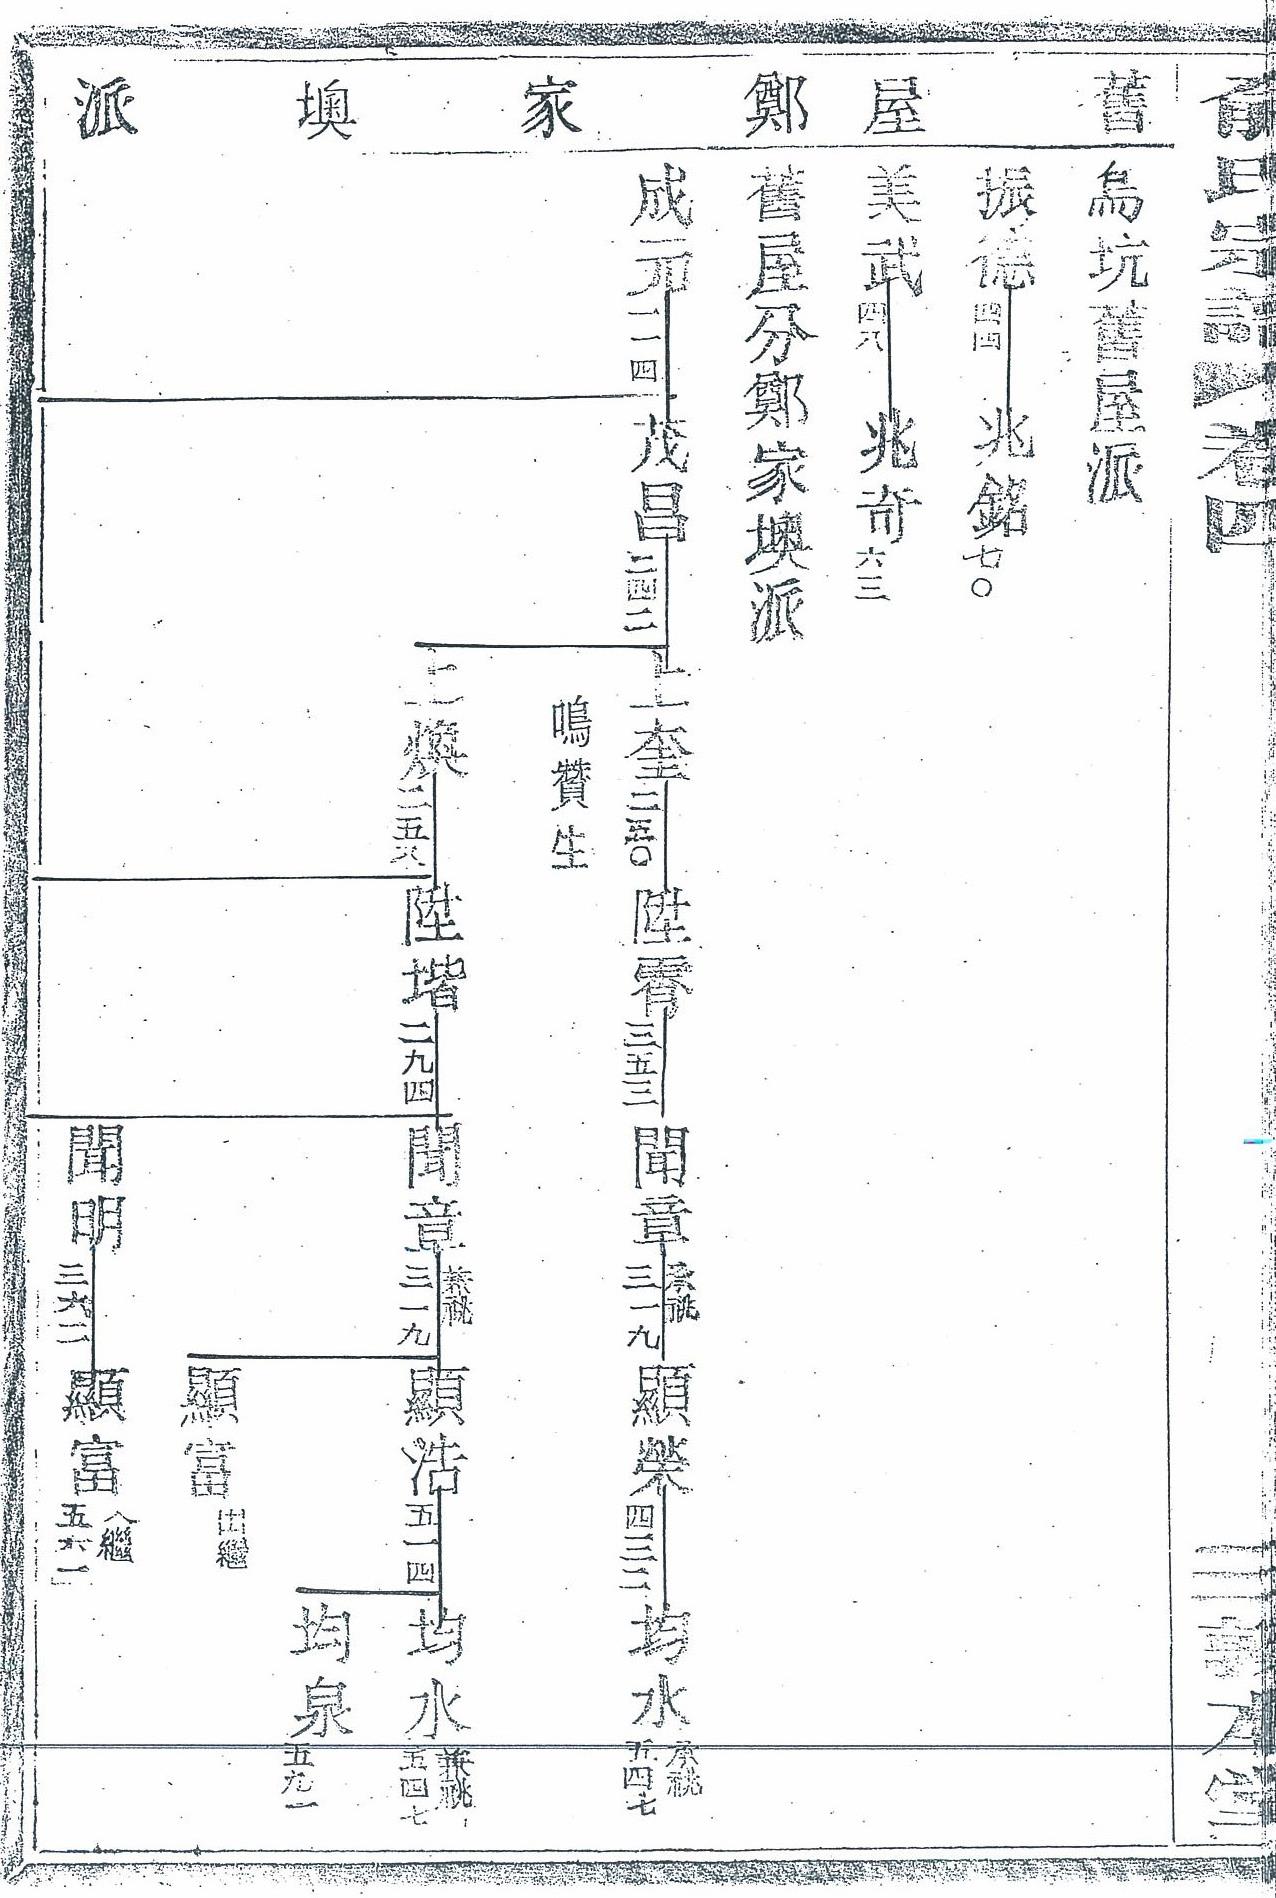 俞氏宗譜 卷四
敦本堂
舊屋 鄭家墺派
烏坑舊屋派
振德 四四 兆銘 七〇
美武 四八 兆奇 六三
舊屋分鄭家墺派
成元 一一四 茂昌 二四二 上奎 二五〇 陞霄 三五三 聞章 承祧 三一九 顯榮 四三二 均水 承祧 五四七
鳴贊生
上煥 二五八 陞堦 二九四 聞章 兼祧 三一九 顯浩 五一四 均水 兼祧 五四七
均泉 五九一
顯富 出繼
聞明 三六二 顯富 入繼 五六一